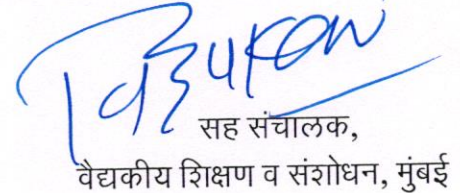 सह संचालक,
वैद्यकीय शिक्षण व संशोधन, मुंबई